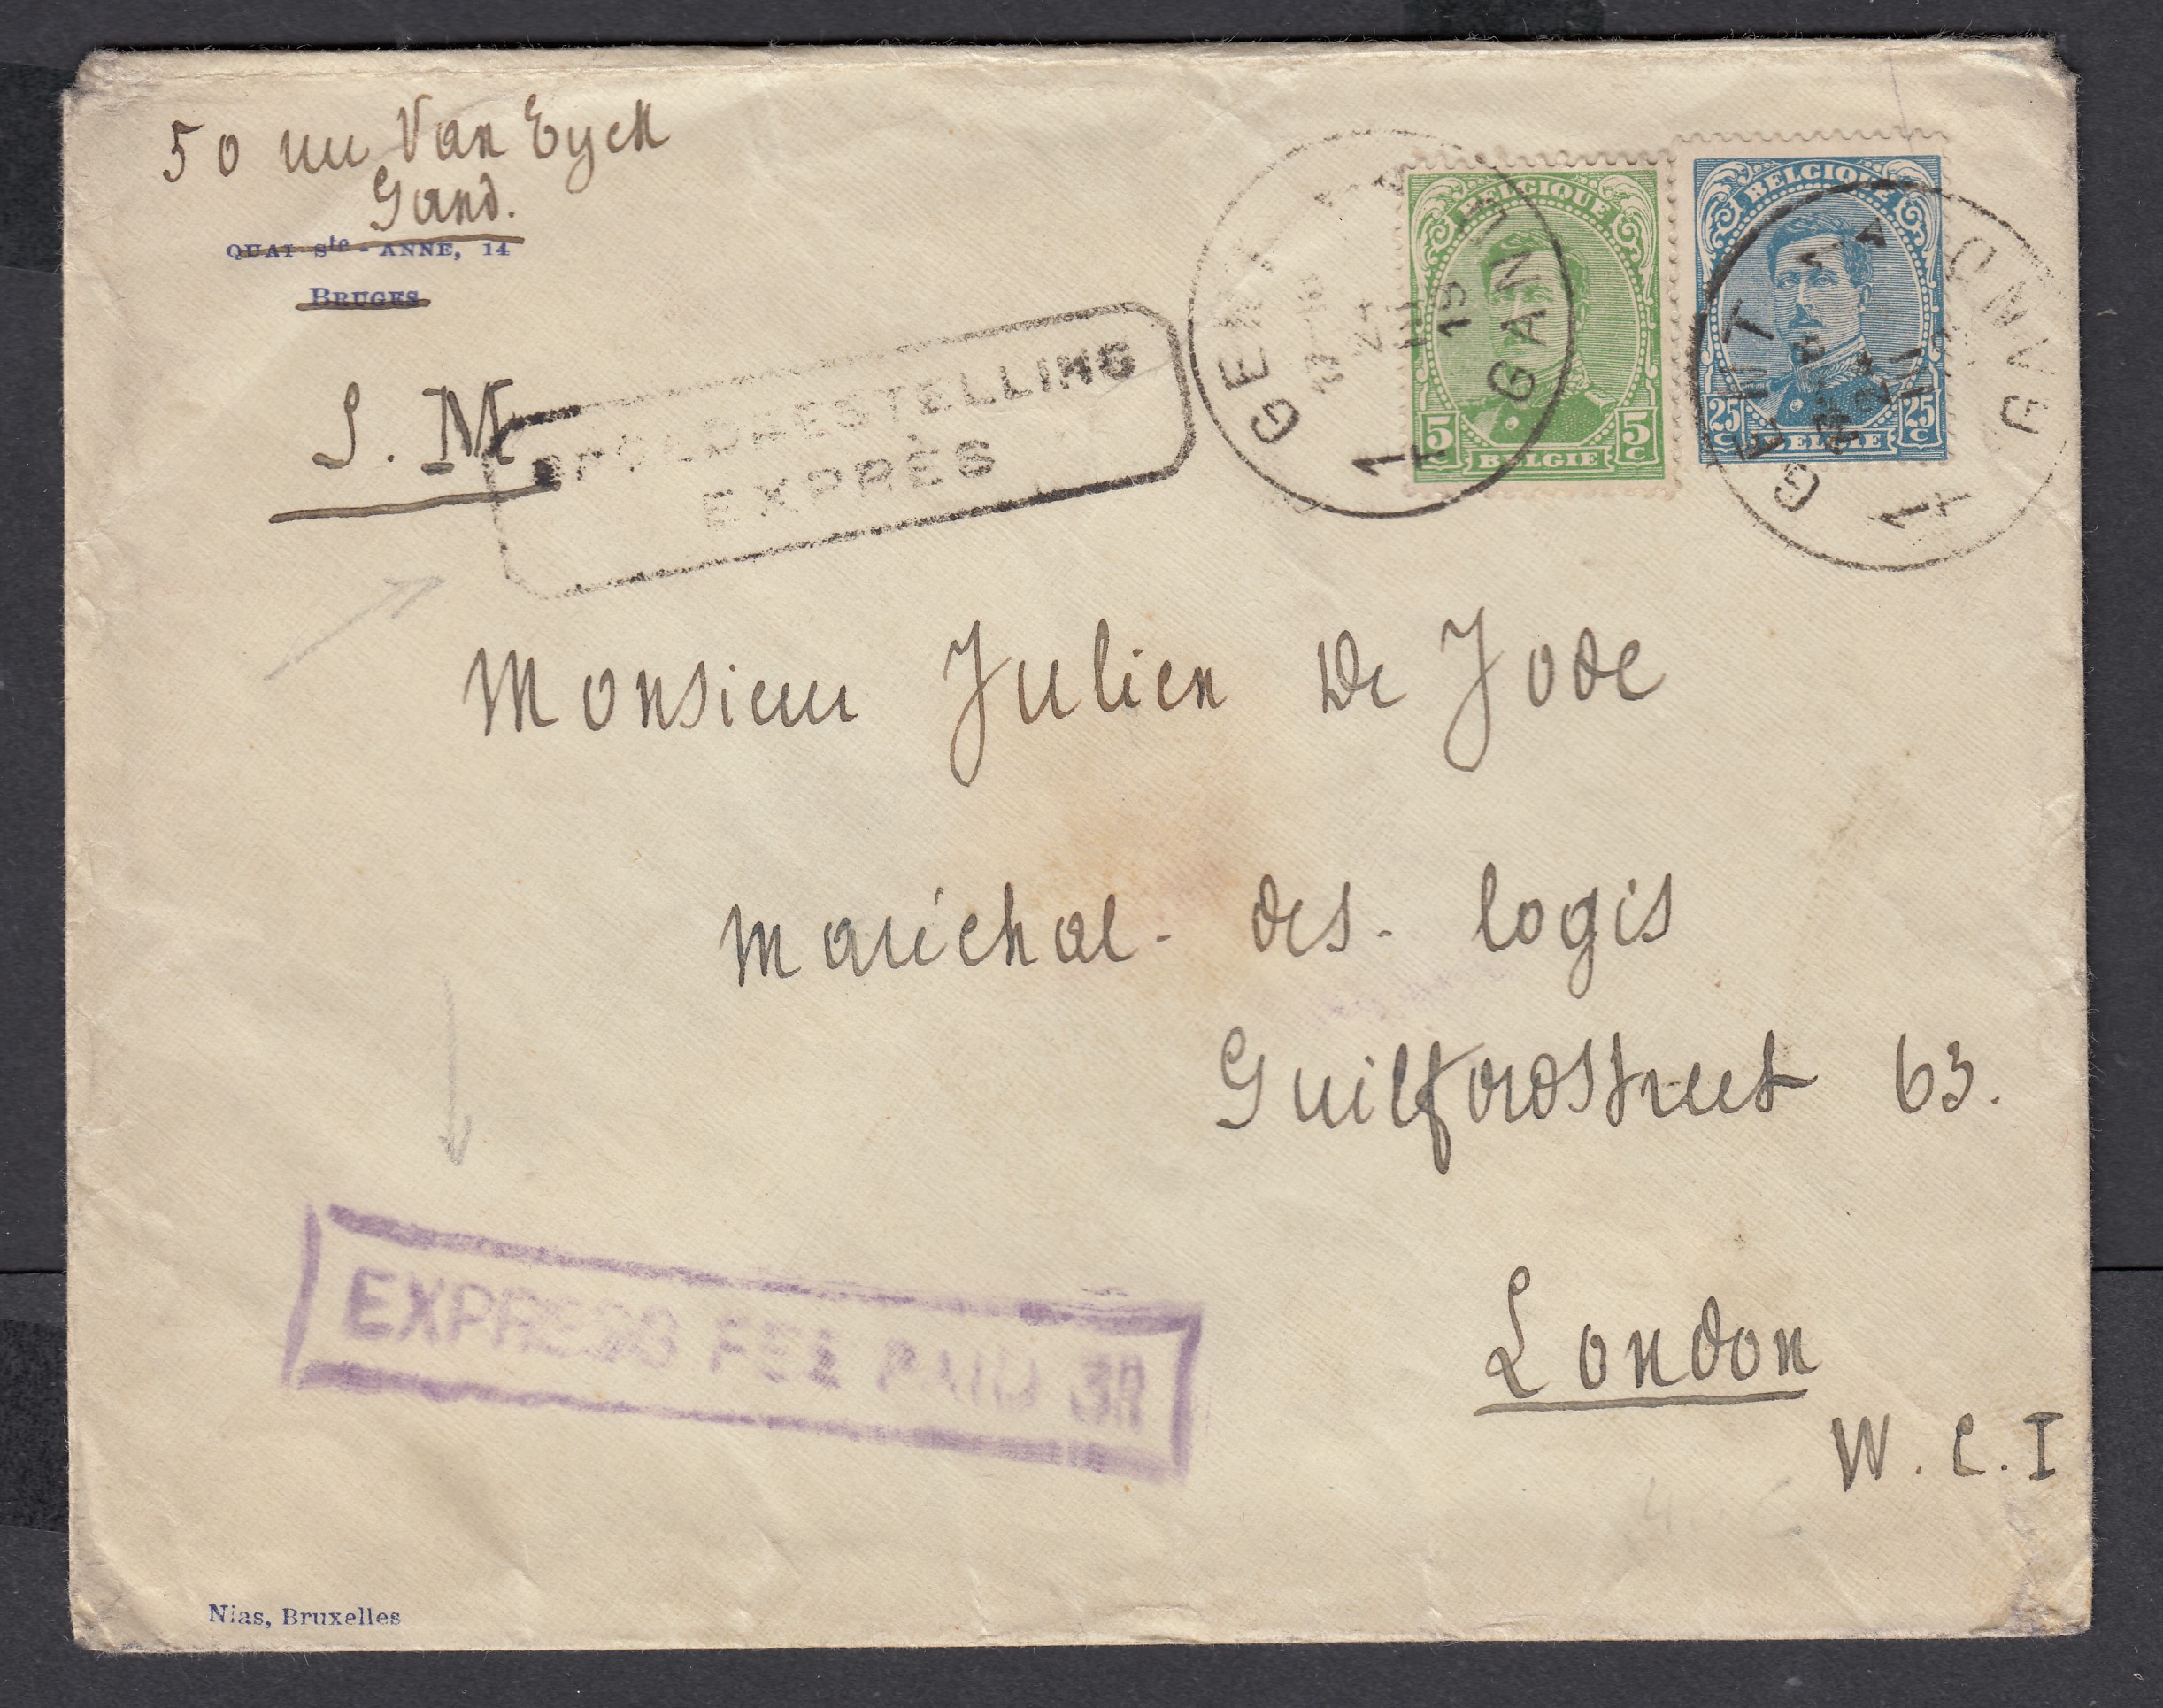 50 rue Van Eyck
Gand.
QUAI Ste-ANNE, 14
BRUGES
S. M.
SPOEDBESTELLING
EXPRÈS
GENT 1
GAND
1
BELGIQUE
5c 5c
BELGIE
GENT 1 A
GAND
1
BELGIQUE
25c 25c
BELGIE
Monsieur Julien De Jode
Maréchal-des-logis
Guilfordstreet 63.
London
W.C.I
EXPRESS FEE PAID 3D
Nias, Bruxelles